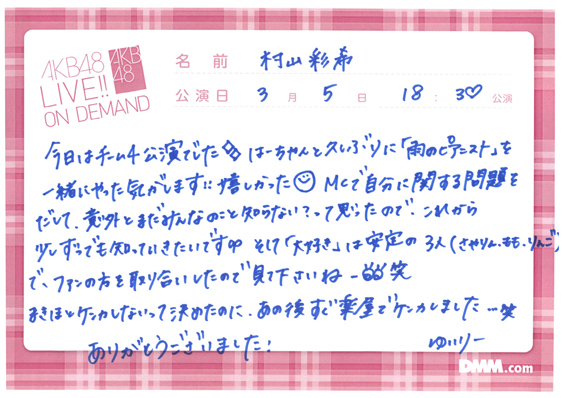 AKB48
LIVE!!
ON DEMAND
AKB
48
名前 村山彩希
公演日 3月5日 18:30公演
今日はチーム4公演でした はーちゃんと久しぶりに「雨のピアニスト」を
一緒にやった気がします!! 嬉しかった MCで自分に関する問題を
だして、意外とまだみんなのこと知らない?って思ったので、これから
少しずつでも知っていきたいです そして「大好き」は安定の3人(さやりん、もも、りんご)
で、ファンの方を取り合いしたので見て下さいね 笑
まきほとケンカしないって決めたのに、あの後すぐ楽屋でケンカしました…笑
ありがとうございました! ゆいりー
DMM.com